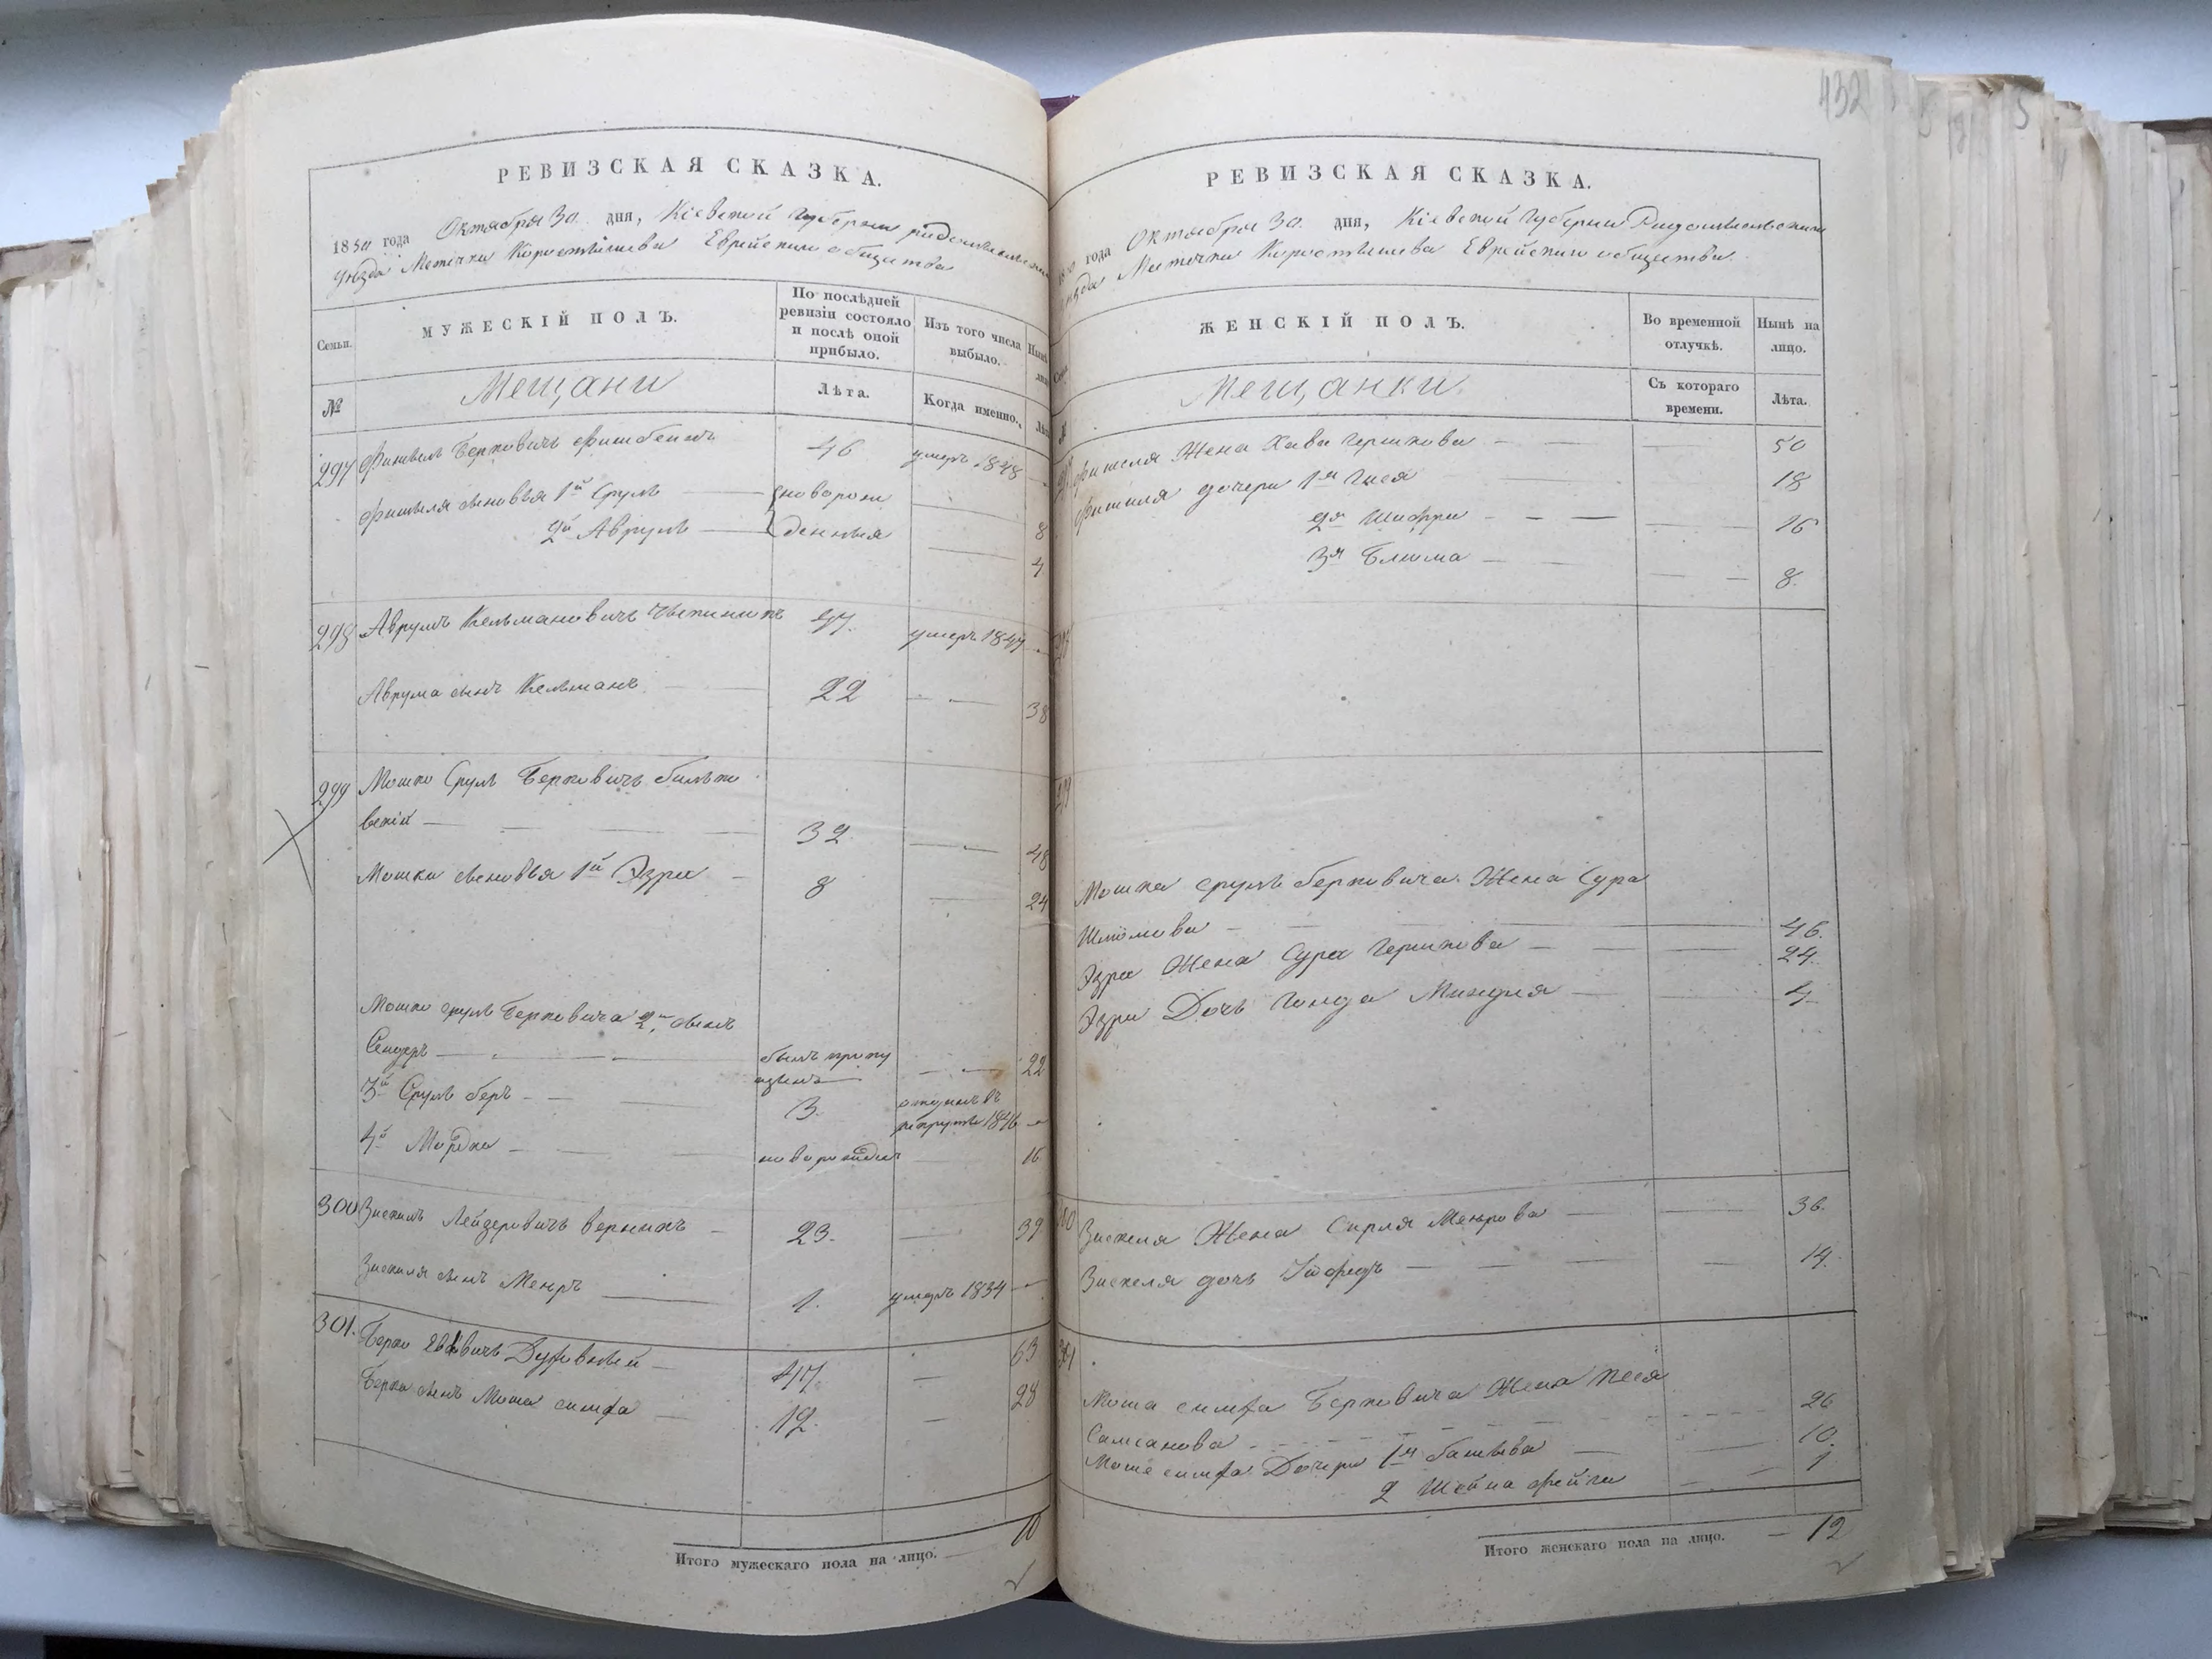 РЕВИЗСКАЯ СКАЗКА.
1850 года Октября 30 дня, Кіевской Губерніи
уѣзда Местечка Коростышева Еврейского общества
Семьи.
МУЖЕСКІЙ ПОЛЪ.
По послѣдней ревизіи состояло и послѣ оной прибыло.
Изъ того числа выбыло.
№
Мещани
Лѣта.
Когда именно.
297 Фишель Берковичъ 46 умеръ 1848
Фишеля сыновья 1й Сруль новорож 8
2й Аврумъ денныя 4
298 Аврумъ Кельмановичъ 47. умеръ 1847
Аврума сынъ Кельманъ 22 38
299 Мошко Сруль Берковичъ
вскій 32 48
Мошки сыновья 1й Эзра 8 24
Мошко Сруль Берковича 2й сынъ
Сендеръ былъ пропу 22
щенъ
3й Сруль Беръ 3. отданъ въ
рекруты 1846
4й Мордко новорожден 16
300 Зискель Лейзеровичъ 23. 39
Зискеля сынъ Меиръ 1. умеръ 1834
301. Берко 47 63
Берка сынъ Моша 12. 28
Итого мужескаго пола на лицо. 10
432
РЕВИЗСКАЯ СКАЗКА.
1850 года Октября 30 дня, Кіевской Губерніи Радомысльского
уѣзда Местечка Коростышева Еврейского общества.
ЖЕНСКІЙ ПОЛЪ.
Во временной отлучкѣ.
Нынѣ на лицо.
Мещанки
Съ котораго времени.
Лѣта.
Фишеля Жена Хава Гершкова 50
Фишеля дочери 1я Гися 18
2я Шифра 16
3я Блюма 8.
Мошка Сруль Берковича Жена Сура
Шлiомова 46.
Эзри Жена Сура Гершкова 24.
Эзри Дочь Миндля 4
300 Зискеля Жена Сирля Меирова 36.
Зискеля дочь 14.
301
Моша Берковича Жена Песя
26
10.
Дочери 1я 1
2 Шейна Фейга
Итого женскаго пола на лицо. 12